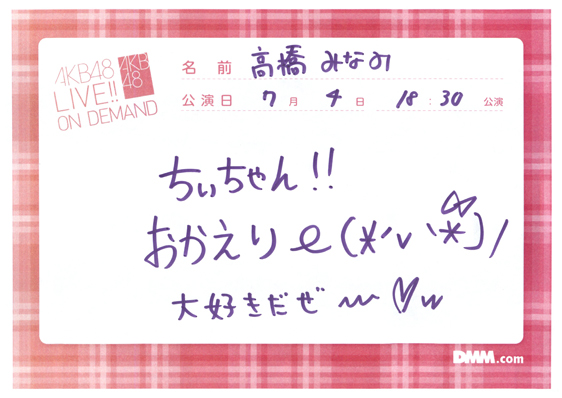 AKB48
LIVE!!
ON DEMAND
AKB
48
名前 高橋みなみ
公演日 7月4日 18:30公演
ちぃちゃん!!
おかえりe(*´v`*)/
大好きだぜ〜♡w
DMM.com